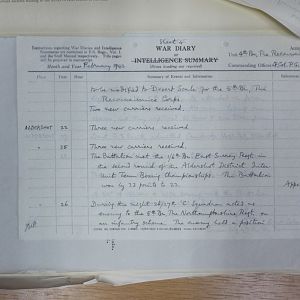 Instructions regarding War Diaries and Intelligence
Summaries are contained in F.S. Regs., Vol. I
and the Staff Manual respectively. Title pages
will be prepared in manuscript.
Sheet 2
WAR DIARY
or
INTELLIGENCE SUMMARY
(Erase heading not required)
Month and Year February 1943
Unit 5th Bn. The
Commanding Officer Lt.Col. P.G.
Place
Date
Hour
Summary of Events and Information
to be modified to Desert Scale for the 5th Bn, The
Reconnaissance Corps
Two new carriers received.
ALDERSHOT 22 Three new carriers received
" 25 Three new carriers received.
The Battalion met the 1/6th Bn. East Surrey Regt in
the second round of the Aldershot District Inter
Unit Team Boxing Championships. The Battalion
won by 33 points to 22.
" 26 During the night 26/27th 'C' Squadron acted as
enemy to the 5th Bn, The Northamptonshire Regt. on
an infantry scheme. The enemy held a position